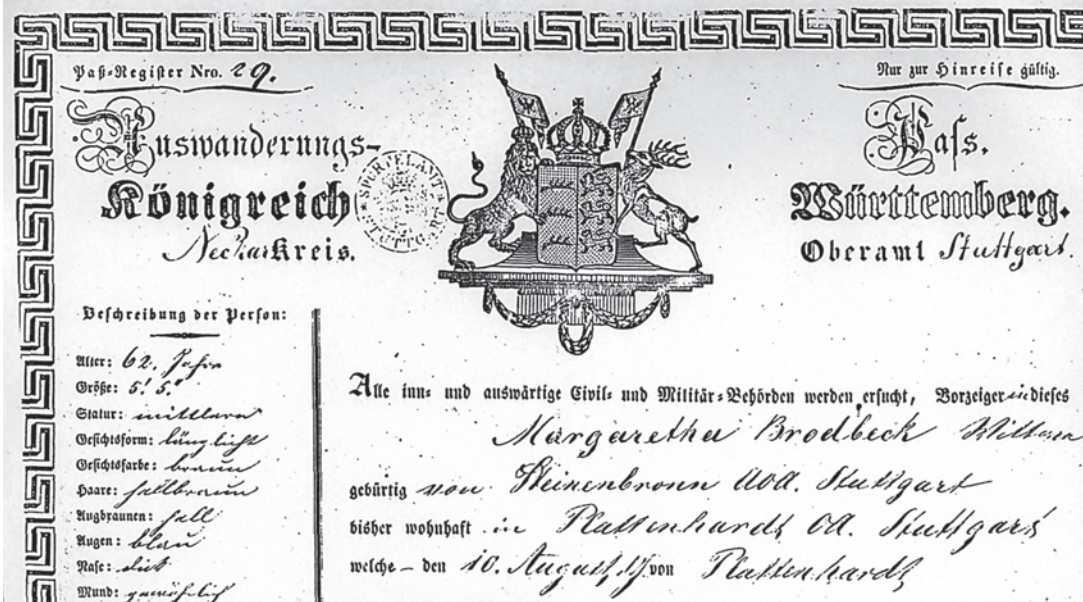 Paß-Register Nro. 29.
Nur zur Hinreise gültig.
Auswanderungs-
Pass.
Königreich
Württemberg.
Neckarkreis.
Oberamt Stuttgart.
Beschreibung der Person:
Alter: 62. Jahre
Größe: 5! 5."
Statur: mittlere
Gesichtsform: länglicht
Gesichtsfarbe: braun
Haare: hellbraun
Augbraunen: hell
Augen: blau
Nase: dick
Mund: gewöhnlich
Alle inn- und auswärtige Civil- und Militär-Behörden werden ersucht, Vorzeigerin dieses
Margaretha Brodbeck
gebürtig von Steinenbronn Stuttgart
bisher wohnhaft in Plattenhardt OA. Stuttgart
welche – den 10. August von Plattenhardt